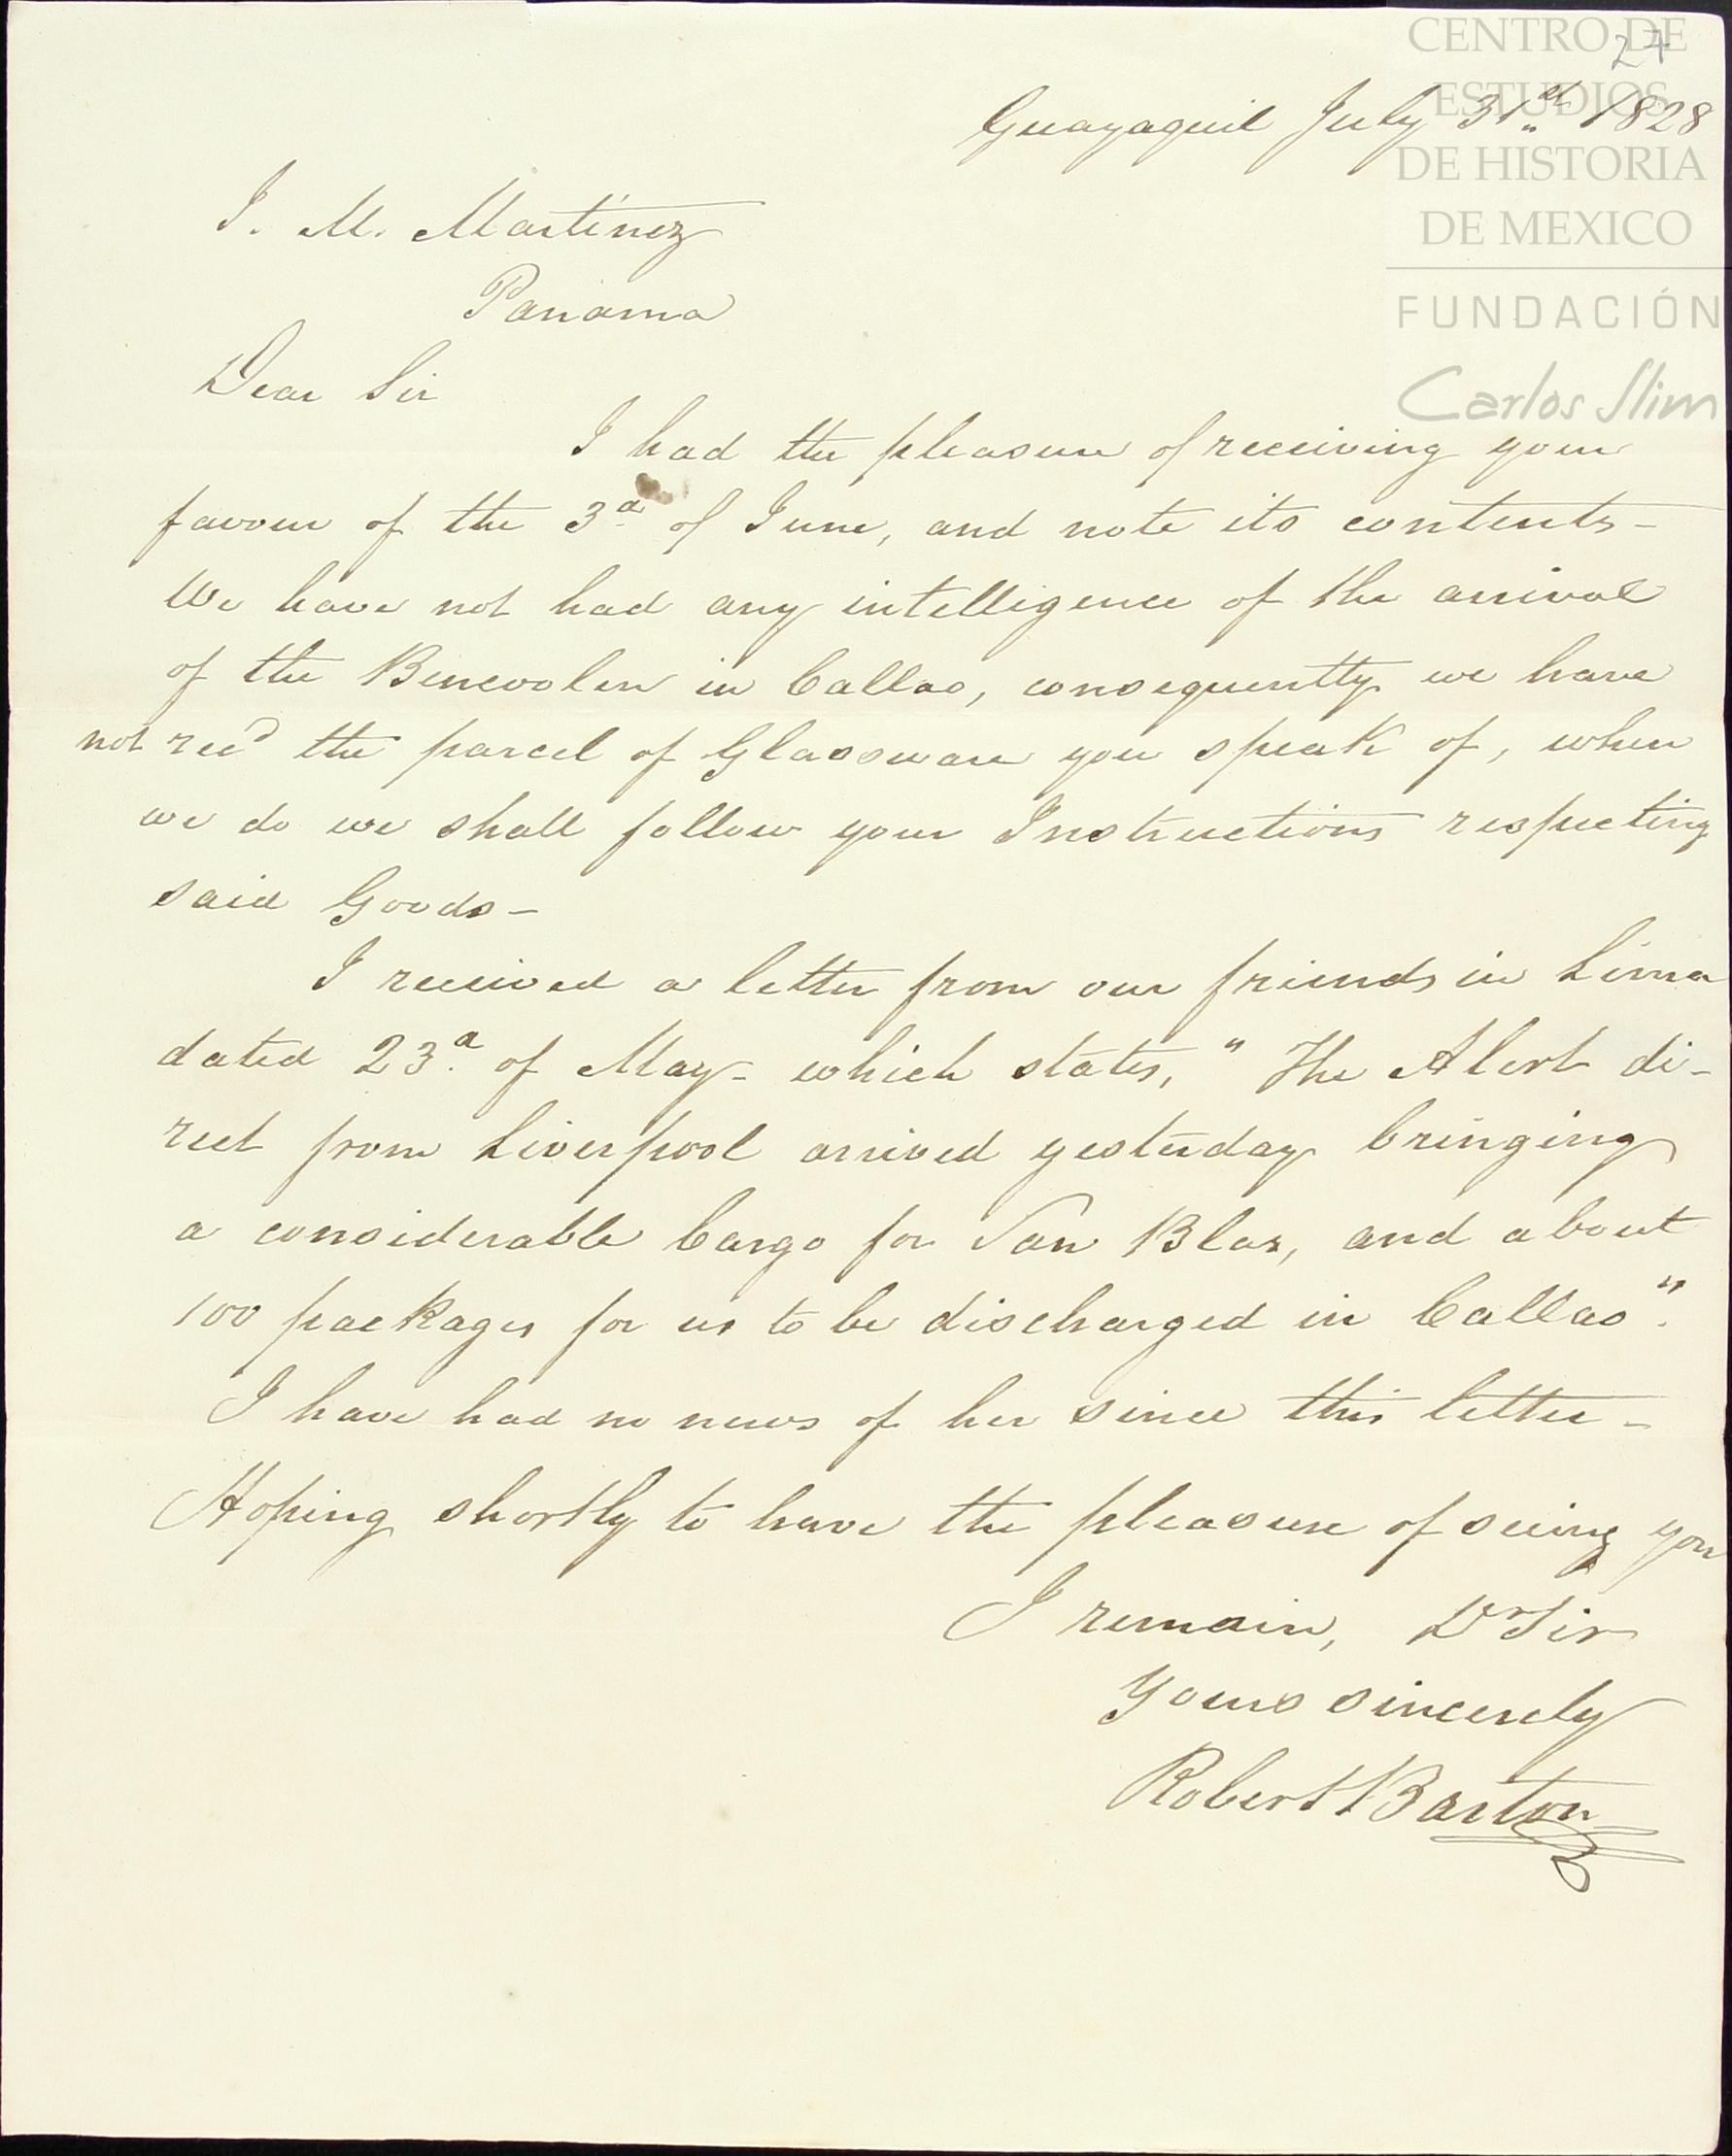 CENTRO DE
ESTUDIOS
DE HISTORIA
DE MEXICO
FUNDACIÓN
Carlos Slim
27
Guayaquil July 31st 1828
J. M. Martinez
Panama
Dear Sir
I had the pleasure of receiving your
favour of the 3d of June, and note its contents -
We have not had any intelligence of the arrival
of the in Callao, consequently we have
not recd the parcel of Glassware you speak of, when
we do we shall follow your Instructions respecting
said Goods -
I received a letter from our friends in Lima
dated 23d. of May - which states, "The Alert di-
rect from Liverpool arrived yesterday bringing
a considerable Cargo for San Blas, and about
100 packages for us to be discharged in Callao".
I have had no news of her since this letter -
Hoping shortly to have the pleasure of seeing you
I remain, Dr Sir
Yours sincerely
Robert Barton